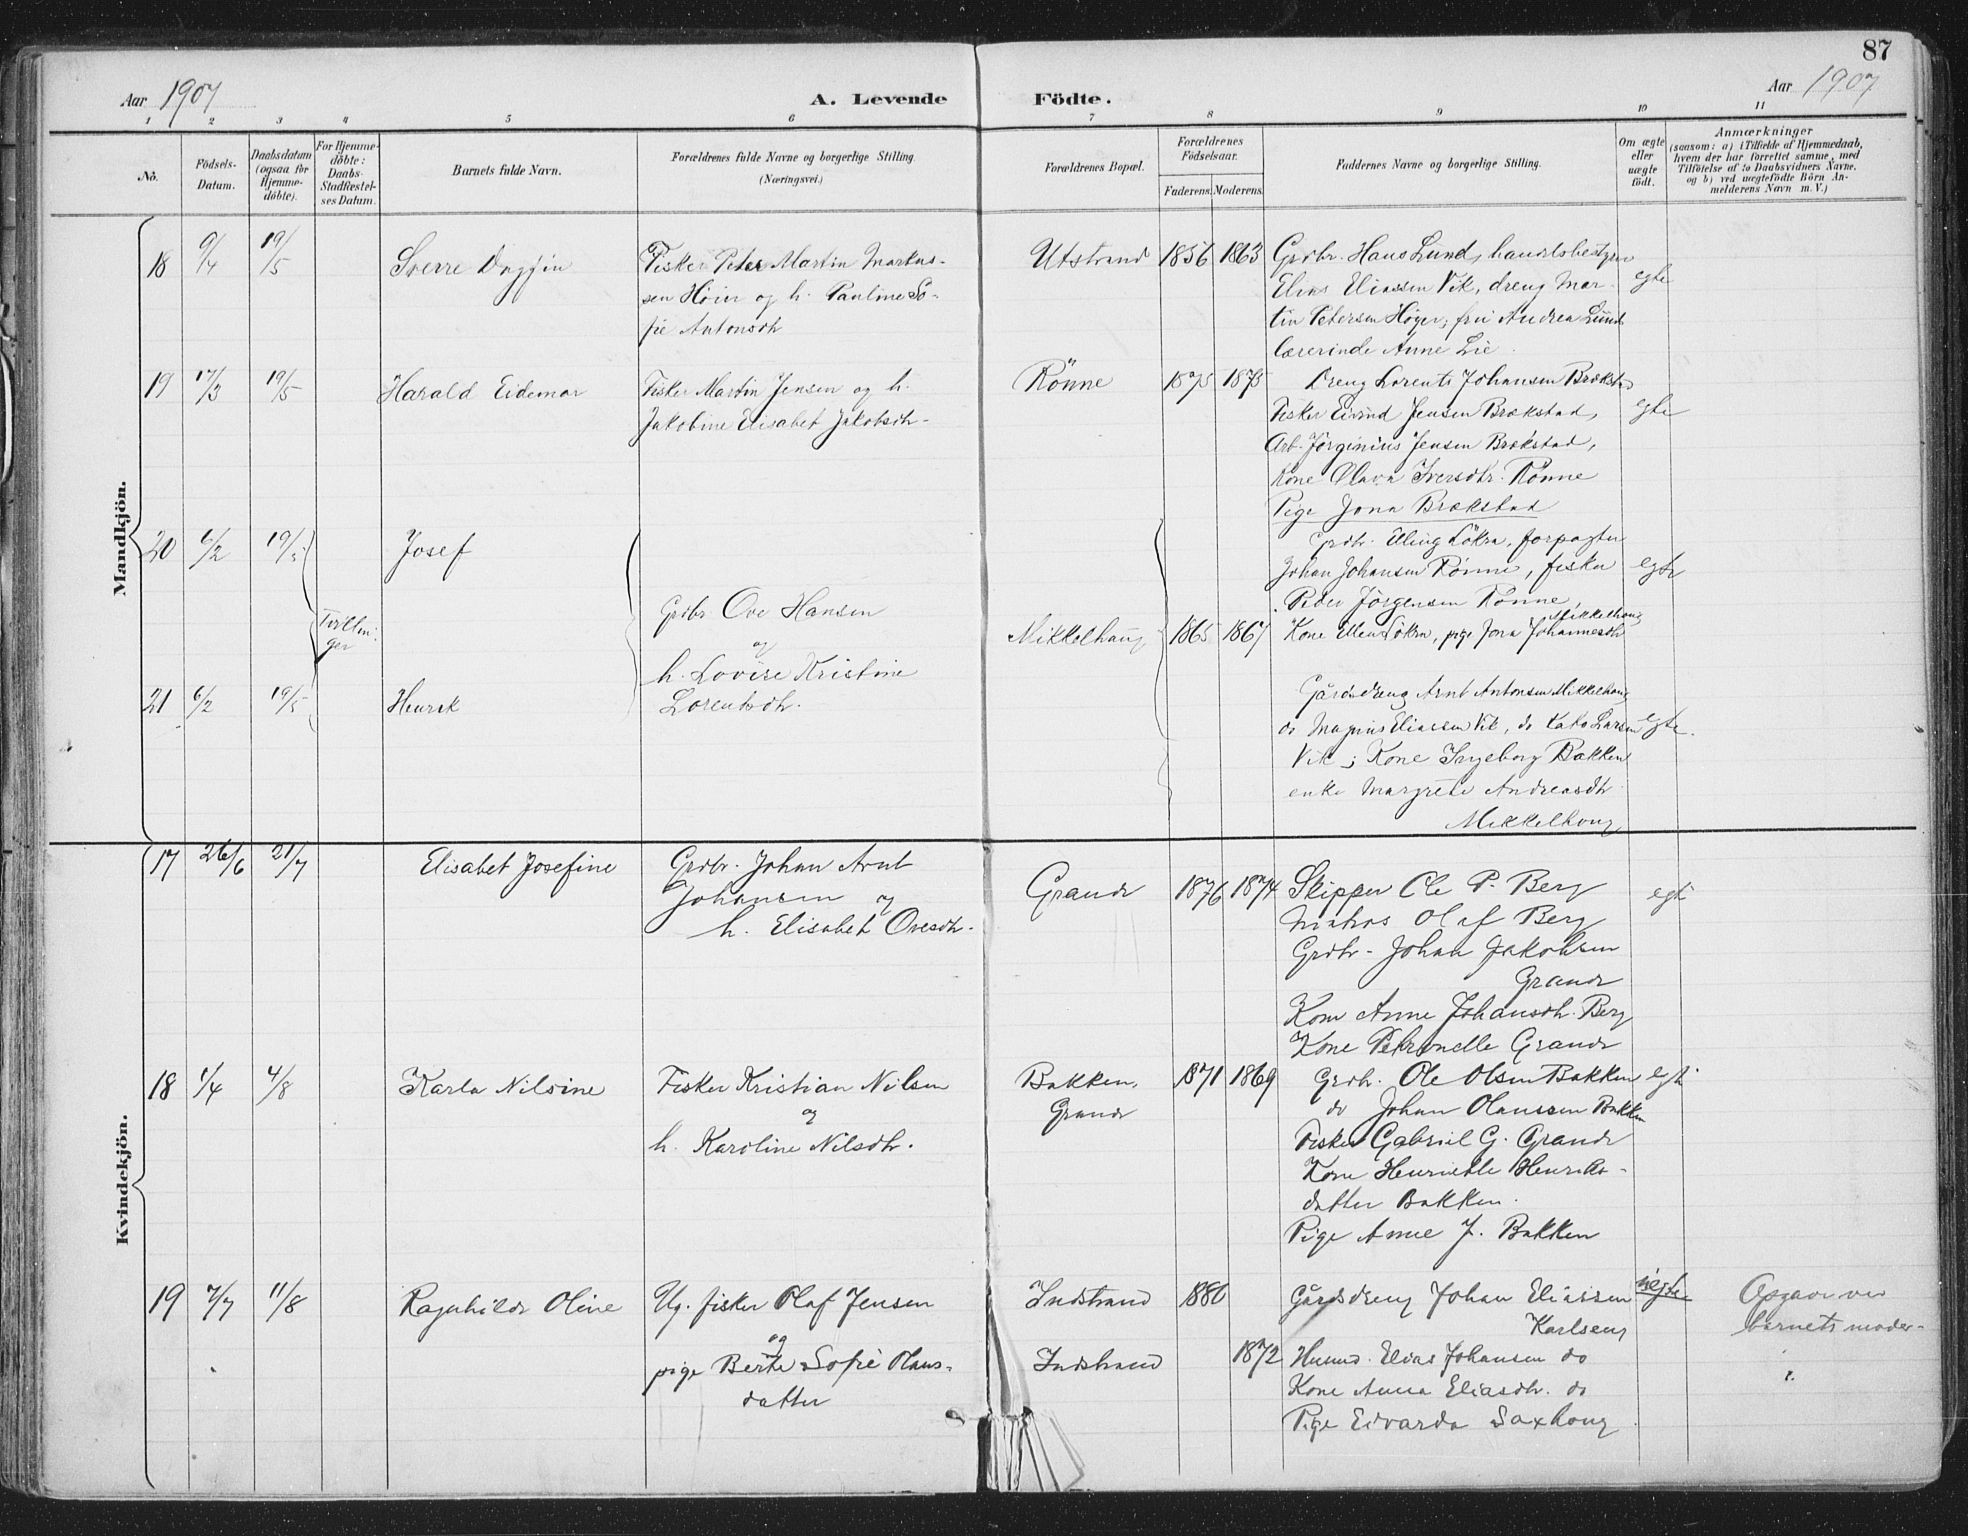 87
Aar 1907
A. Levende Födte.
Aar 1907
1 2 3 4 5 6 7 8 9 10 11
No.
Födsels-
Datum.
Daabsdatum
(ogsaa for
Hjemme-
döbte).
For Hjemme-
döbte:
Daabs-
Stadfæstel-
ses Datum.
Barnets fulde Navn.
Forældrenes fulde Navne og borgerlige Stilling.
(Næringsvei.)
Forældrenes Bopæl.
Forældrenes
Födselsaar.
Faderens. Moderens.
Faddernes Navne og borgerlige Stilling.
Om ægte
eller
uægte
födt.
Anmærkninger
(saasom: a) i Tilfælde af Hjemmedaab,
hvem der har forrettet samme, med
Tilföielse af to Daabsvidners Navne.
og b) ved uægtefödte Börn An-
melderens Navn m. V.)
Mandkjön.
18 9/4 19/5 Sverre Dagfin
Fisker Peter Martin Markus-
sen Höier og h. Pauline So-
fie Antonsdtr
Utstrand 1856 1863
Grdbr. Hans Lund, handelsbestyrer
Elias Eliassen Vik, dreng Mar-
tin Petersen Höyer, fru Andrea Lund
Lærerinde Anne Lie.
egte
19 17/3 19/5 Harald Eidemar
Fisker Martin Jensen og h.
Jakobine Elisabet Jakobsdtr-
Rönne 1875 1875
Dreng Lorents Johansen Brækstad
Fisker Eivind Jensen Brækstad,
Arb. Jörginius Jensen Brækstad,
Kone Olava Iversdtr. Rönne
Pige Jona Brækstad
egte
20 6/2 19/5 Josef
Tvillin-
ger
Grdbr Ove Hansen
og
h. Lovise Kristine
Lorentsdtr.
Mikkelhaug 1865 1867
Grdbr. Elling Lökra, forpagter
Johan Johansen Rönne, fisker
Peder Jörgensen Rönne
Mikkelhaug
Kone Ellen Lökra, pige Jona Johannesdtr
egte
21 6/2 19/5 Henrik
Gårdsdreng Arnt Antonsen Mikkelhaug
do Magnus Eliassen Vik, do Kato Larsen
Vik; Kone Ingeborg Bakken
enke Margrete Andreasdtr
Mikkelhaug
egte.
Kvindekjön.
17 26/6 21/7 Elisabet Josefine
Grdbr. Johan Arnt
Johansen og
h. Elisabet Ovesdtr.
Grande 1876 1874
Skipper Ole P. Berg
Matros Olaf Berg
Grdbr- Johan Jakobsen
Grande
Kone Anne Johansdtr. Berg
Kone Petronelle Grande
egte
18 1/4 4/8 Karla Nilsine
Fisker Kristian Nilsen
og
h. Karoline Nilsdtr.
Bakken,
Grande
1871 1869
Grdbr. Ole Olsen Bakken
do Johan Olaussen Bakken
Fisker Gabriel G. Grande
Kone Henriette Henriks-
datter Bakken.
Pige Anne J. Bakken
egte
19 7/7 11/8 Ragnhilde Oline
Ug. fisker Olaf Jensen
og
pige Berte Sofie Olaus-
datter
Indstrand 1880
Indstrand 1872
Gårdsdreng Johan Eliassen
Karlseng
Husmd. Elias Johansen do
Kone Anna Eliasdtr. do
Pige Edvarda Saxhaug
uegte
Opgave ved
barnets moder-